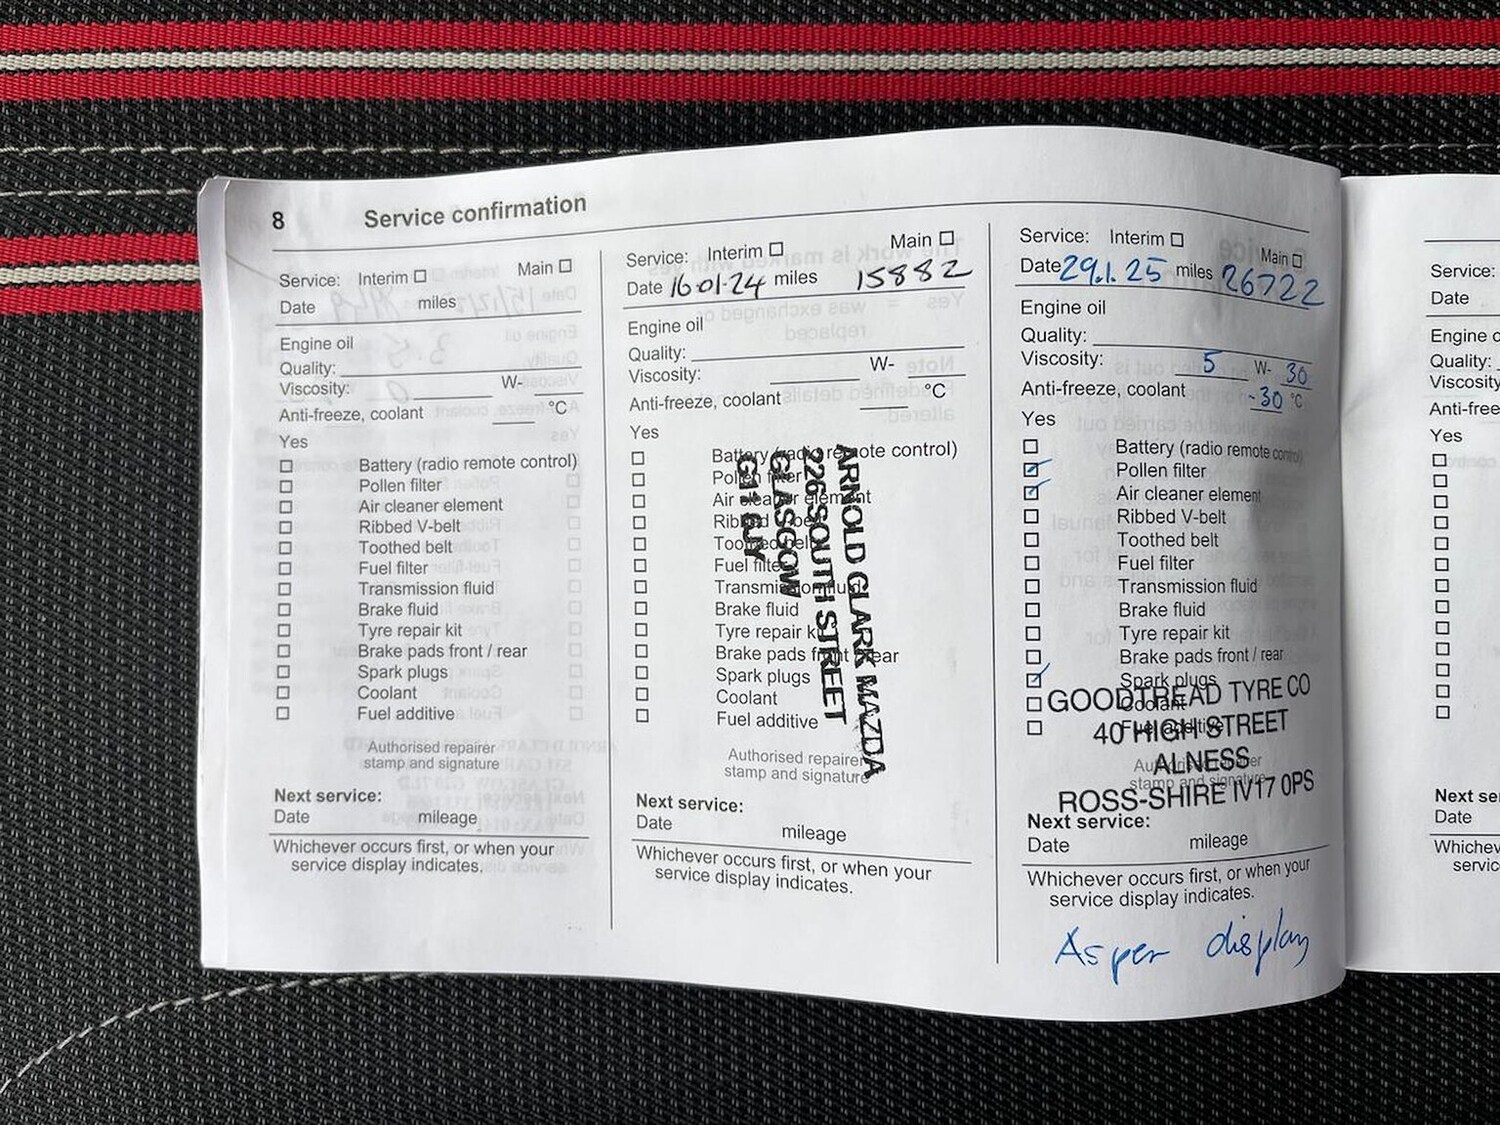 8 Service confirmation
Service: Interim ☐ Main ☐
Date miles
Engine oil
Quality:
Viscosity: W-
Anti-freeze, coolant °C
Yes
☐ Battery (radio remote control)
☐ Pollen filter
☐ Air cleaner element
☐ Ribbed V-belt
☐ Toothed belt
☐ Fuel filter
☐ Transmission fluid
☐ Brake fluid
☐ Tyre repair kit
☐ Brake pads front / rear
☐ Spark plugs
☐ Coolant
☐ Fuel additive
Authorised repairer
stamp and signature
Next service:
Date mileage
Whichever occurs first, or when your
service display indicates.
Service: Interim ☐ Main ☐
Date 16·01·24 miles 15882
Engine oil
Quality:
Viscosity: W-
Anti-freeze, coolant °C
Yes
☐ Battery (radio remote control)
☐ Pollen filter
☐ Air cleaner element
☐ Ribbed V-belt
☐ Toothed belt
☐ Fuel filter
☐ Transmission fluid
☐ Brake fluid
☐ Tyre repair kit
☐ Brake pads front / rear
☐ Spark plugs
☐ Coolant
☐ Fuel additive
ARNOLD CLARK MAZDA
226 SOUTH STREET
GLASGOW
Authorised repairer
stamp and signature
Next service:
Date mileage
Whichever occurs first, or when your
service display indicates.
Service: Interim ☐ Main ☐
Date 29.1.25 miles 26722
Engine oil
Quality:
Viscosity: 5 W- 30
Anti-freeze, coolant -30 °C
Yes
☐ Battery (radio remote control)
☑ Pollen filter
☑ Air cleaner element
☐ Ribbed V-belt
☐ Toothed belt
☐ Fuel filter
☐ Transmission fluid
☐ Brake fluid
☐ Tyre repair kit
☐ Brake pads front / rear
☑ Spark plugs
☐ Coolant
☐ Fuel additive
GOODTREAD TYRE CO
40 HIGH STREET
ALNESS
ROSS-SHIRE IV17 0PS
Authorised repairer
stamp and signature
Next service:
Date mileage
Whichever occurs first, or when your
service display indicates.
As per display
Service:
Date
Engine
Quality:
Viscosity
Yes
Date